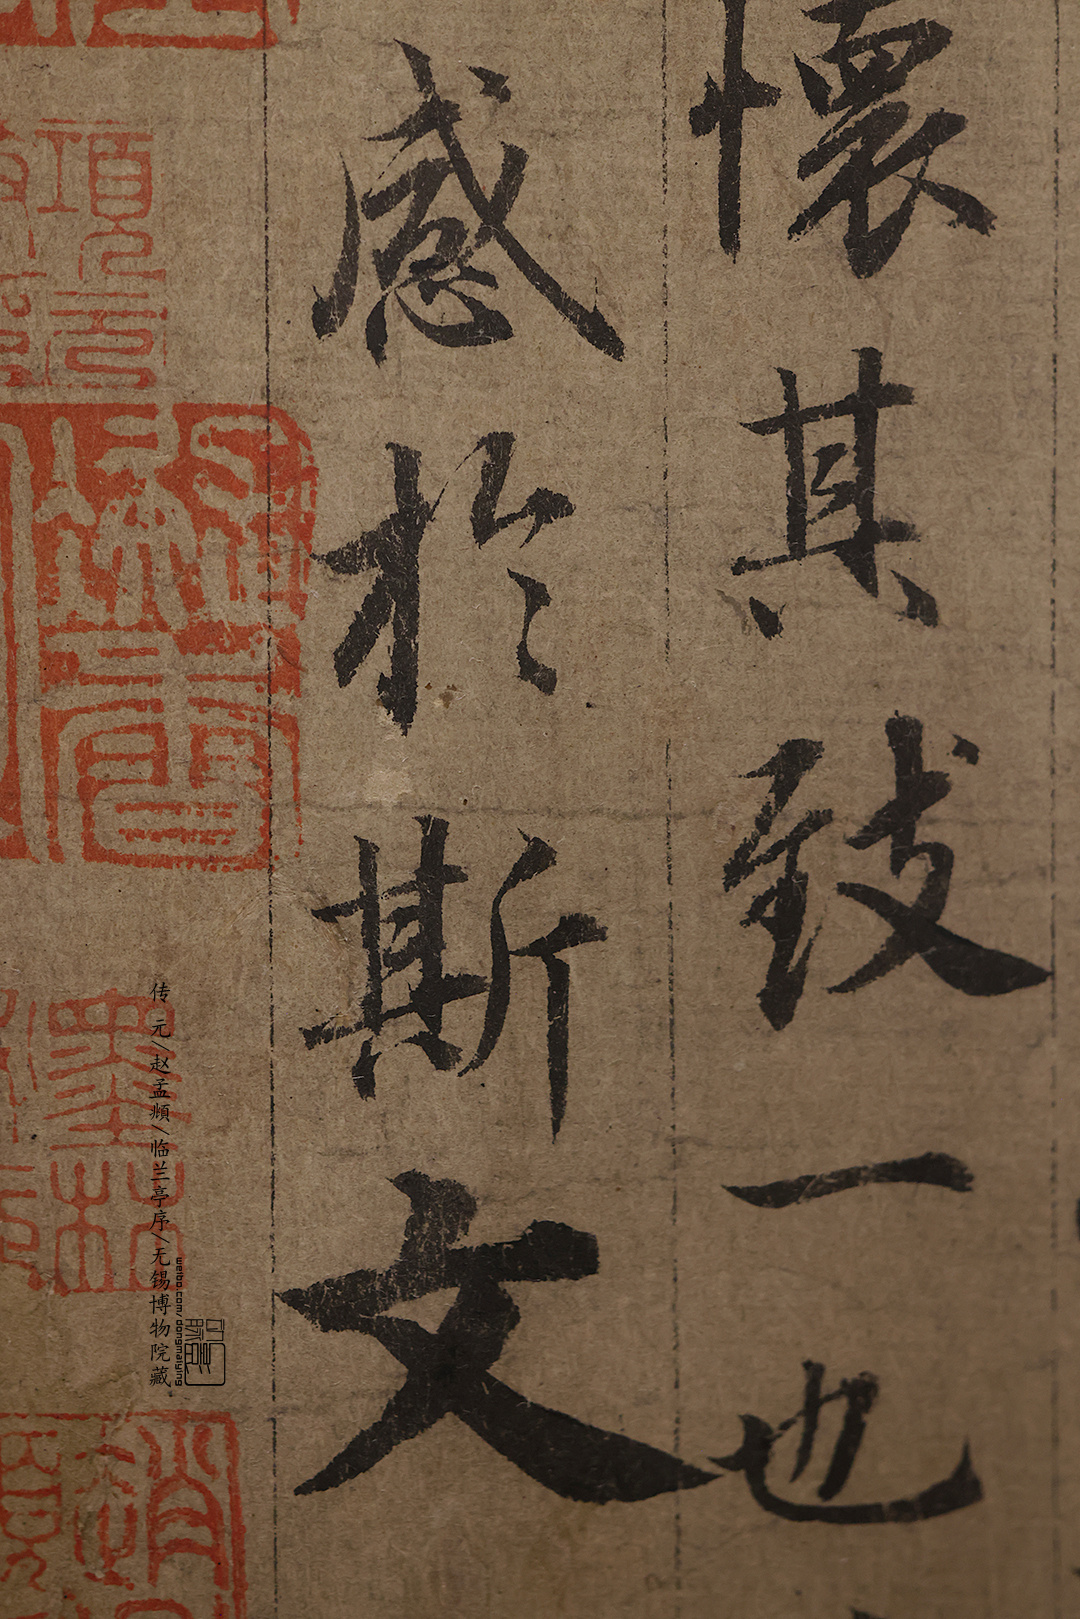 懷其致一也
感於斯文
項元
墨林
趙
传 元/赵孟頫/临兰亭序/无锡博物院藏
weibo.com/dongmaiying